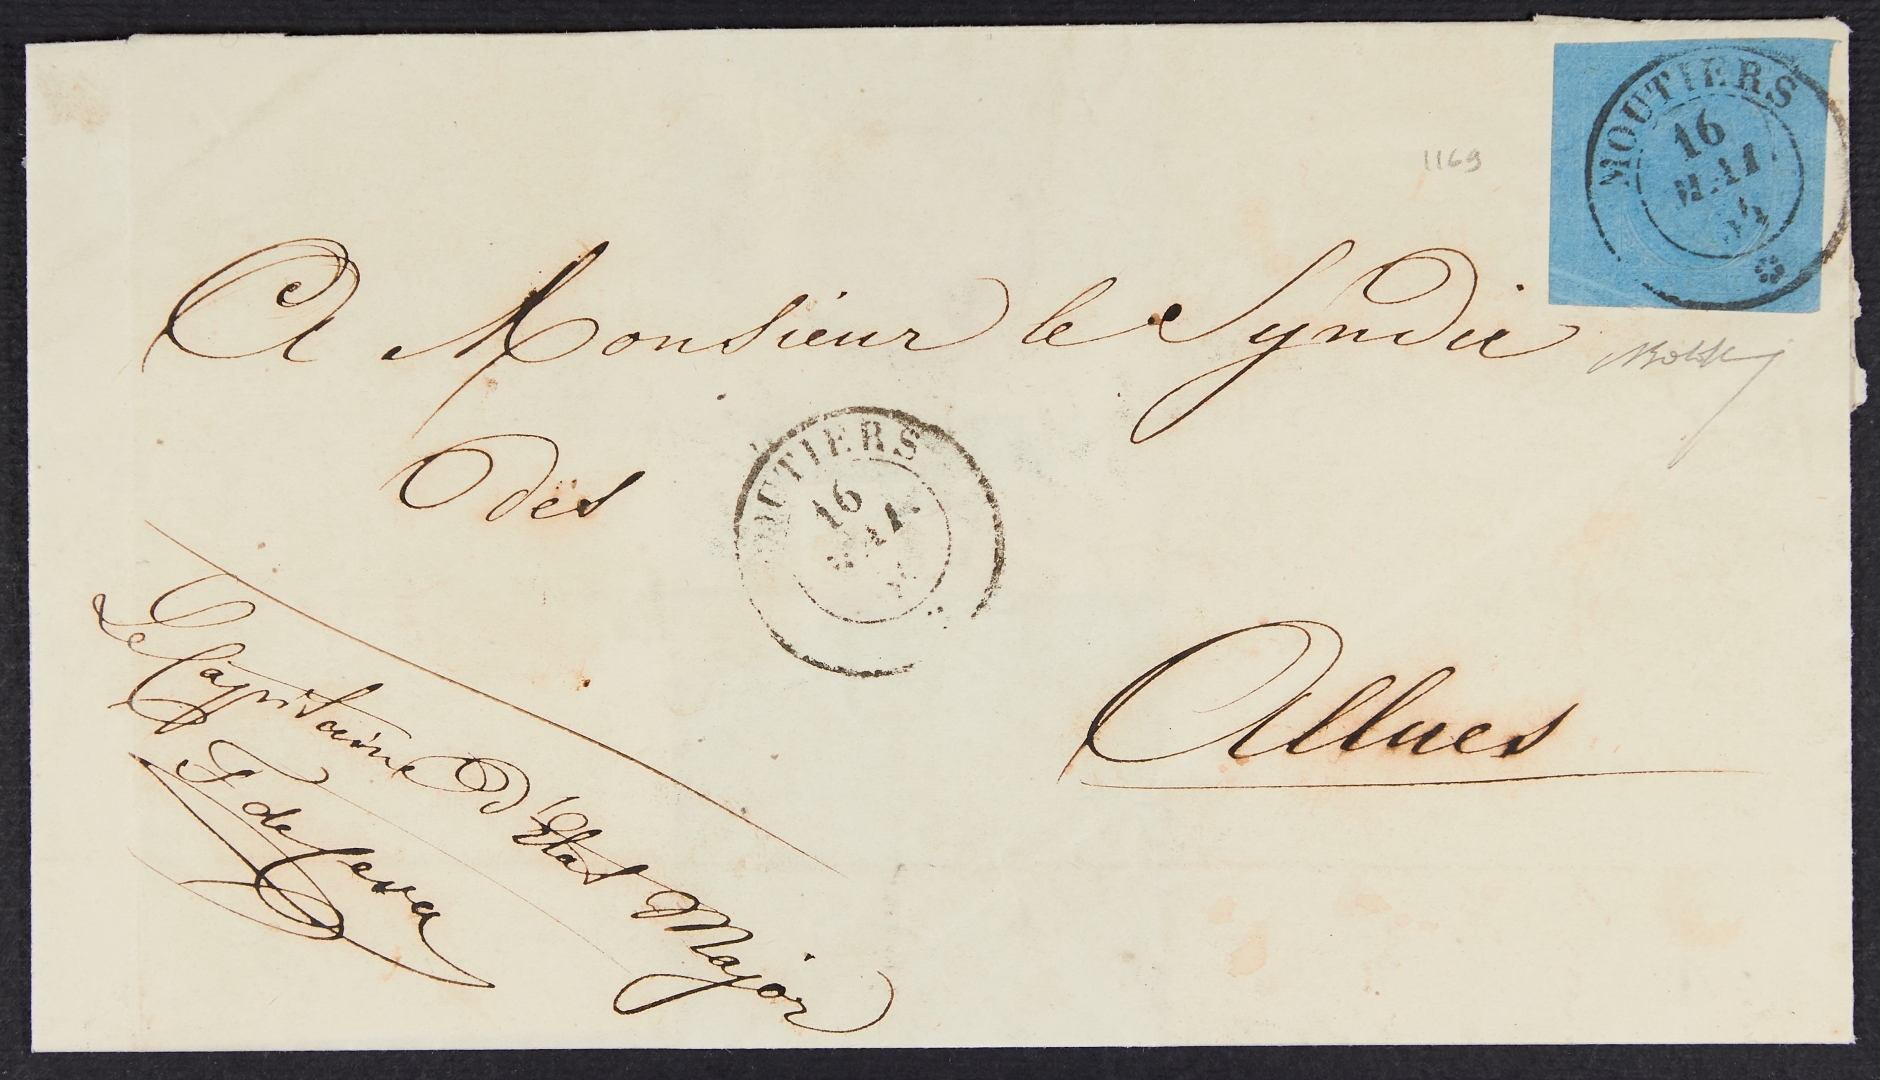 MOUTIERS
16
MAI
54
1169
A Monsieur le Syndic
des
MOUTIERS
16
MAI
Allues
Le Capitaine d'Etat Major
F de